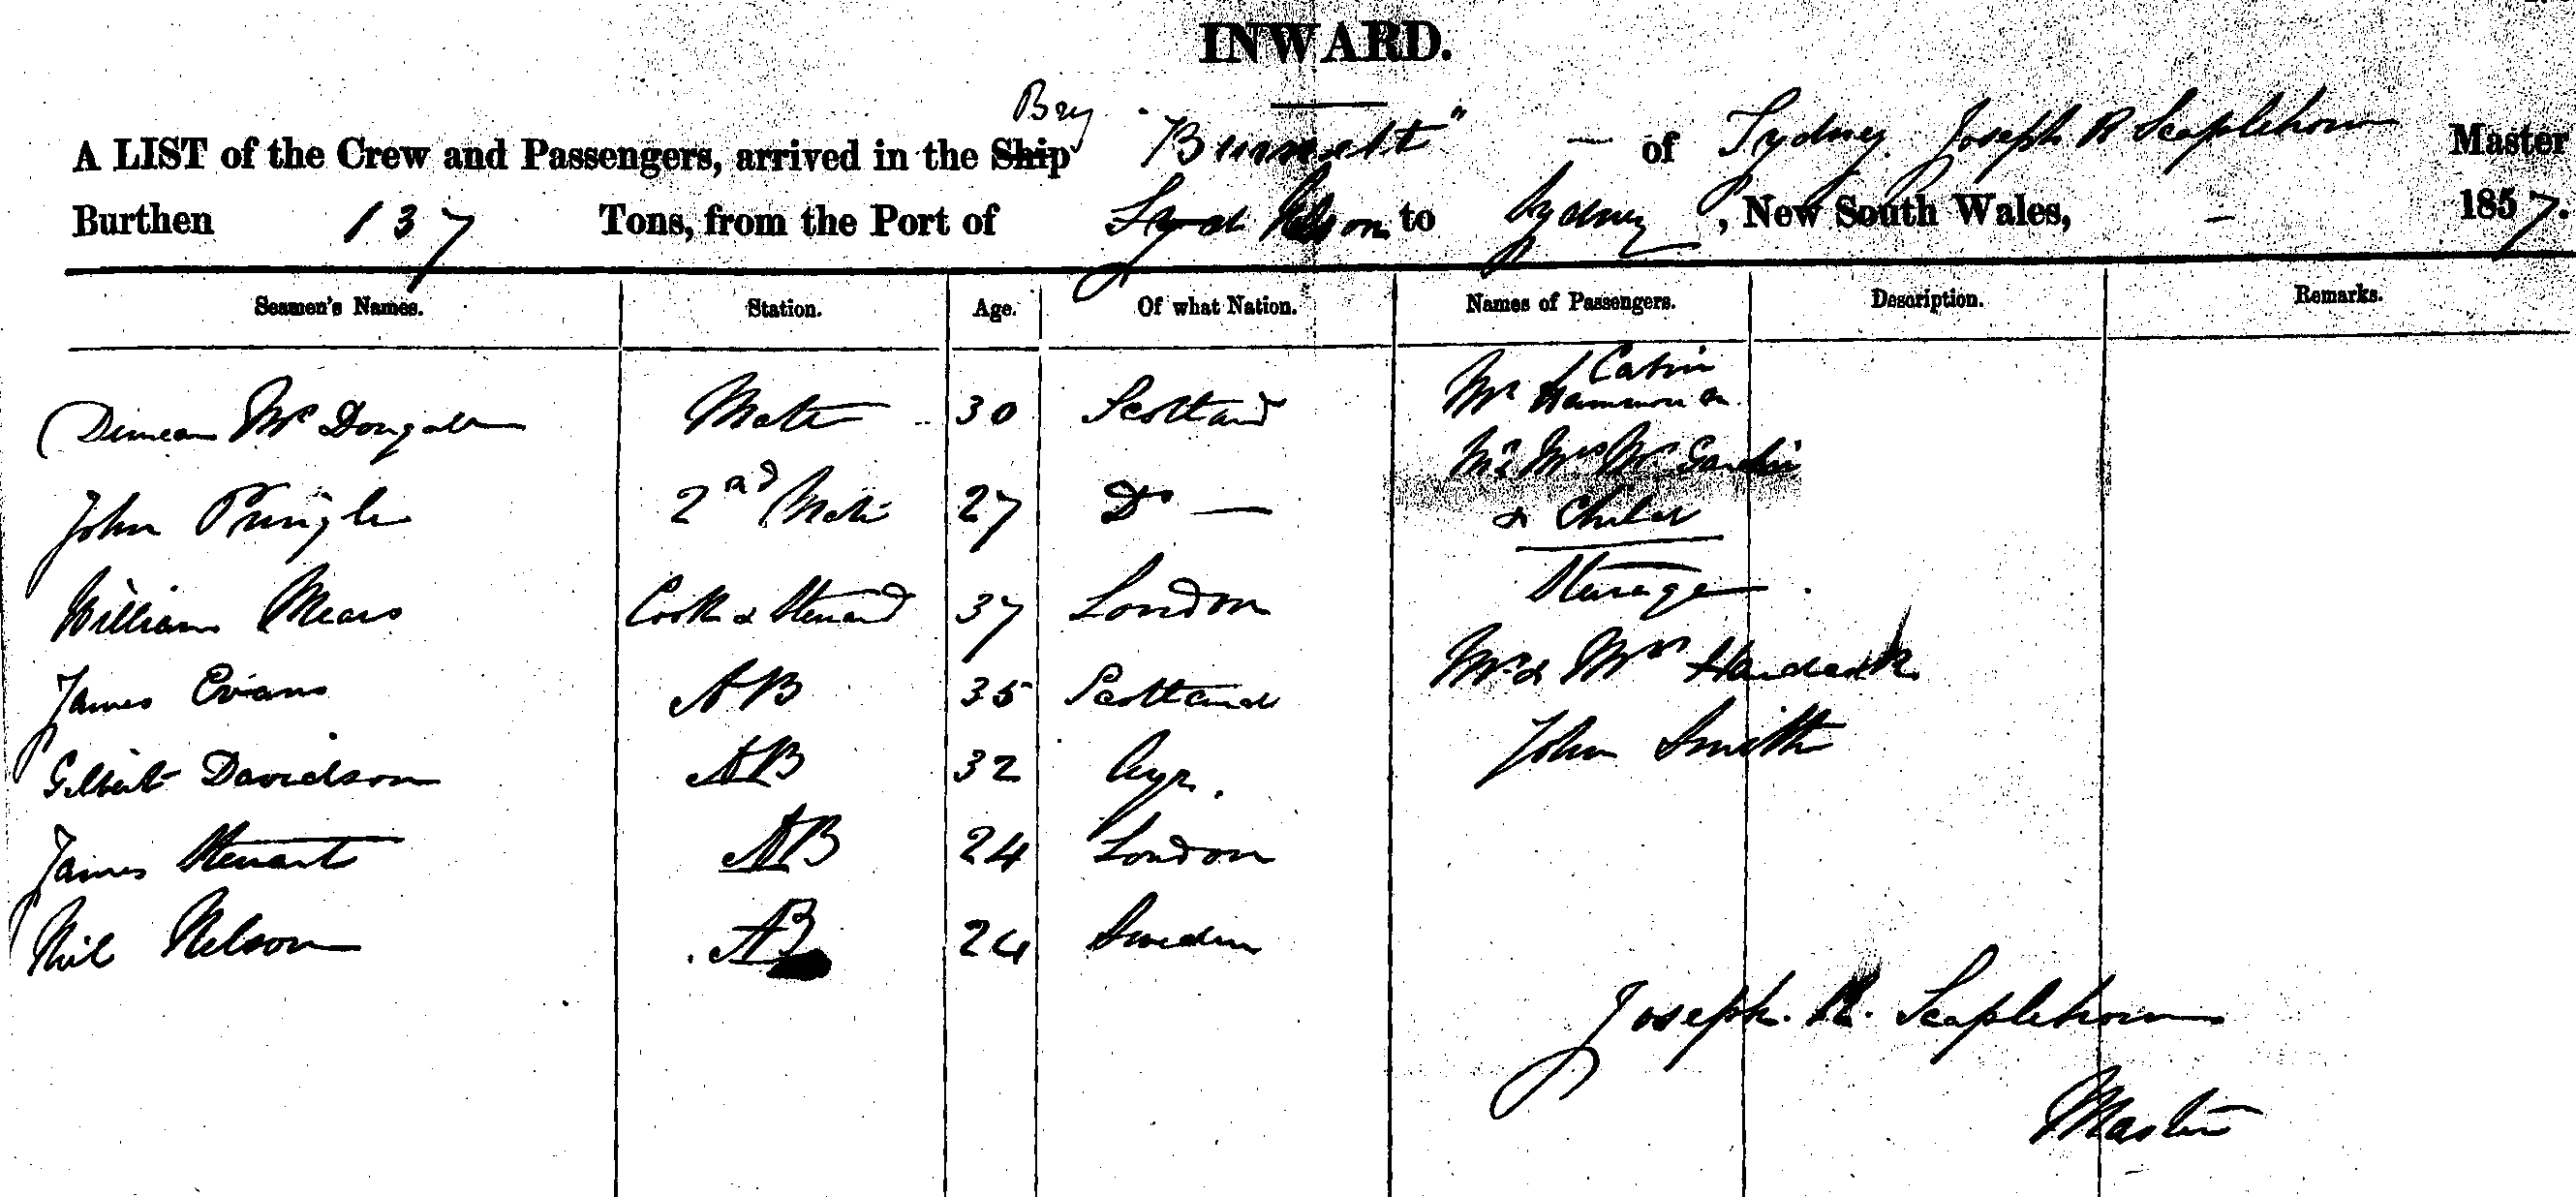 INWARD.
A LIST of the Crew and Passengers, arrived in the Ship Brig "Burnett" — of Sydney. Joseph R Scaplehorn Master
Burthen 137 Tons, from the Port of to Sydney, New South Wales, — 1857.
Seamen's Names. Station. Age. Of what Nation. Names of Passengers. Description. Remarks.
Cabin
Duncan Mc Dougall Mate 30 Scotland Mr
Mr & Mrs
John Pringle 2nd Mate 27 Do — & Child
William Mears Cook & Steward 37 London Steerage
James Evans AB 35 Scotland Mr & Mrs
Gilbert Davidson AB 32 Ayr. John Smith
James Stewart AB 24 London
Neil Nelson AB 24 Sweden
Joseph. R. Scaplehorn
Master